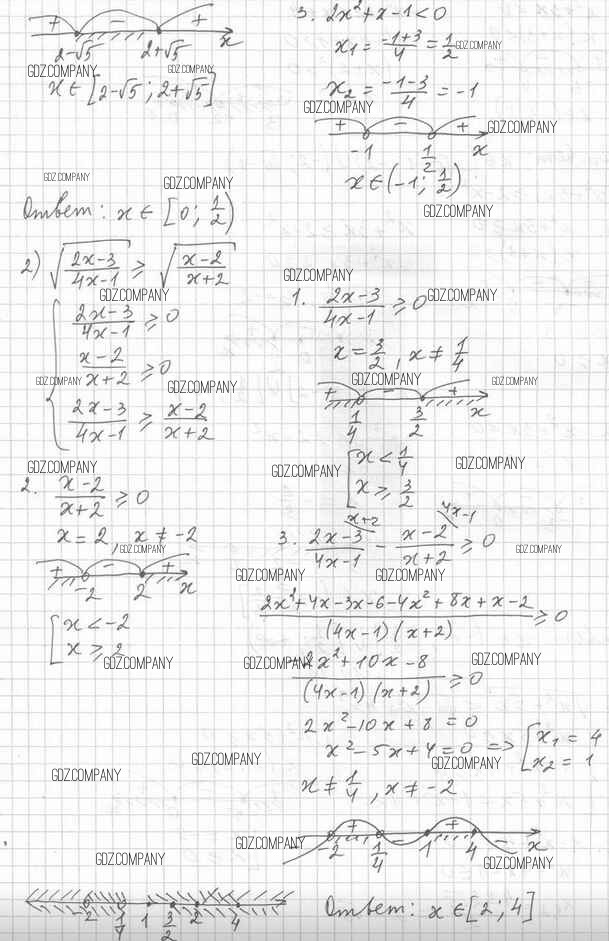 + − +
2-√5 2+√5 x
GDZ.COMPANY GDZ.COMPANY
x ∈ [2-√5 ; 2+√5]
3. 2x²+x-1<0
x₁ = (-1+3)/4 = 1/2 GDZ.COMPANY
x₂ = (-1-3)/4 = -1
GDZ.COMPANY
+ − + GDZ.COMPANY
-1 1/2 x
x ∈ (-1; 1/2)
GDZ.COMPANY
GDZ.COMPANY GDZ.COMPANY
Ответ: x ∈ [0; 1/2)
2) √((2x-3)/(4x-1)) ≥ √((x-2)/(x+2))
GDZ.COMPANY
(2x-3)/(4x-1) ≥ 0
(x-2)/(x+2) ≥ 0
GDZ.COMPANY GDZ.COMPANY
(2x-3)/(4x-1) ≥ (x-2)/(x+2)
GDZ.COMPANY
1. (2x-3)/(4x-1) ≥ 0 GDZ.COMPANY
x = 3/2, x ≠ 1/4
GDZ.COMPANY GDZ.COMPANY
+ − +
1/4 3/2 x
GDZ.COMPANY GDZ.COMPANY
[ x < 1/4
x ≥ 3/2
GDZ.COMPANY
2. (x-2)/(x+2) ≥ 0
x = 2, x ≠ -2
GDZ.COMPANY
+ − +
-2 2 x
[ x < -2
x ≥ 2
GDZ.COMPANY
x+2 4x-1
3. (2x-3)/(4x-1) - (x-2)/(x+2) ≥ 0 GDZ.COMPANY
GDZ.COMPANY GDZ.COMPANY
(2x²+4x-3x-6-4x²+8x+x-2)/((4x-1)(x+2)) ≥ 0
GDZ.COMPANY GDZ.COMPANY
(-2x²+10x-8)/((4x-1)(x+2)) ≥ 0
2x²-10x+8 = 0
x²-5x+4=0 => [ x₁ = 4
x₂ = 1
GDZ.COMPANY GDZ.COMPANY GDZ.COMPANY
x ≠ 1/4, x ≠ -2
− + − + −
-2 1/4 1 4 x
GDZ.COMPANY GDZ.COMPANY GDZ.COMPANY
-2 1/4 1 3/2 2 4
Ответ: x ∈ [2; 4]